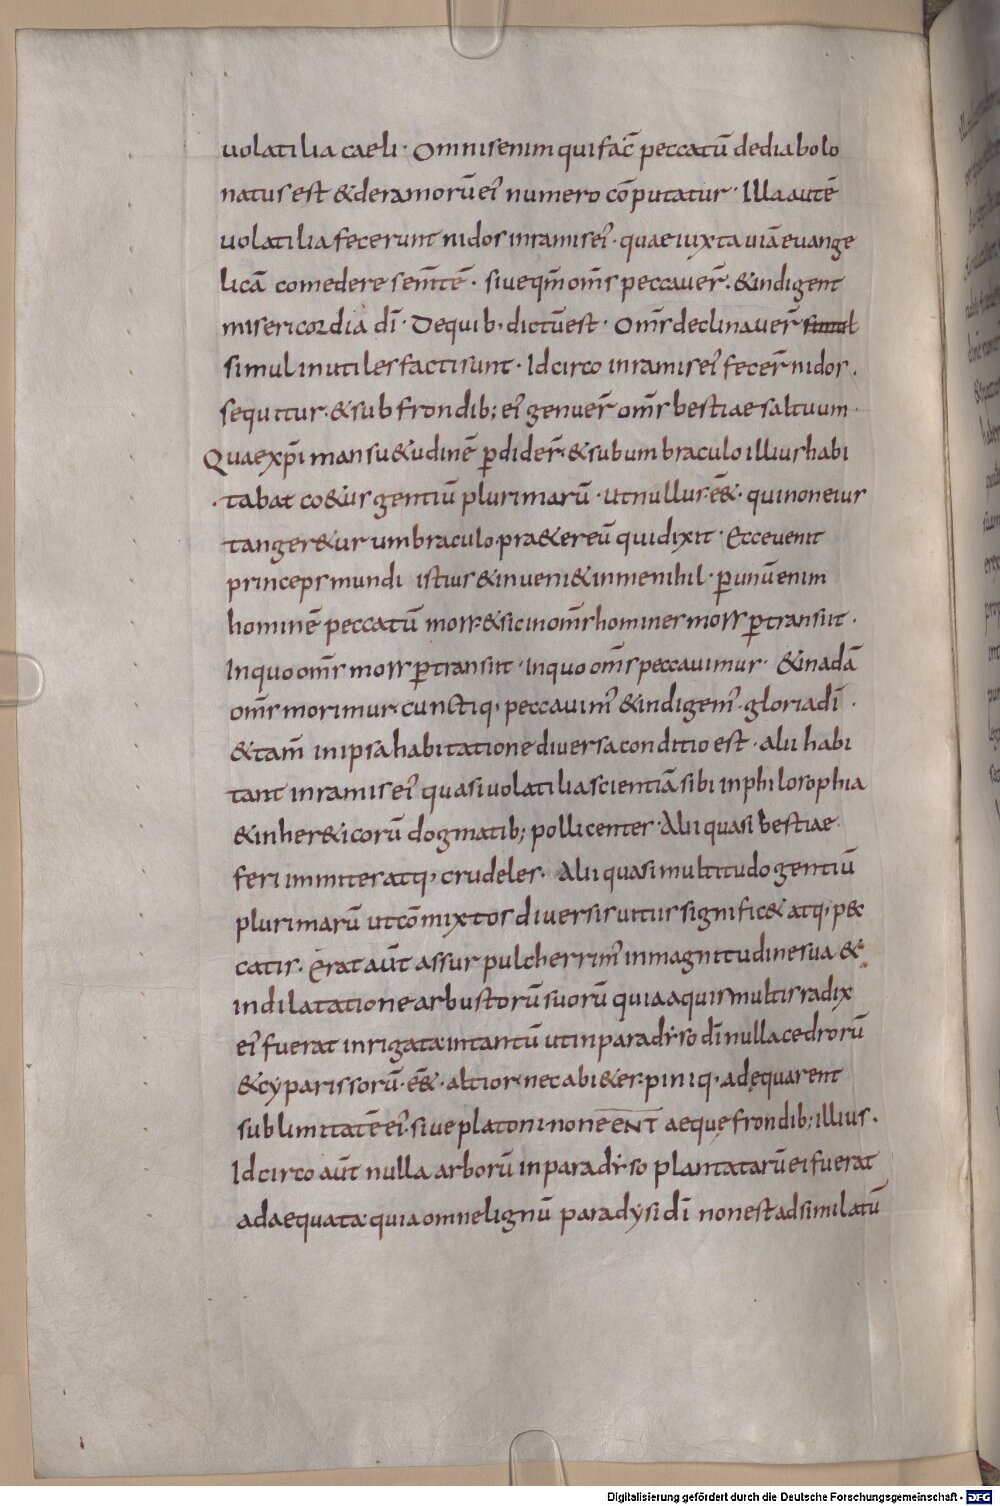 uolatilia caeli · Omnis enim qui fac̄ peccatū de diabolo
natus est & de ramorū eı᷒ numero cōputatur · Illa autē
uolatilia fecerunt nidos in ramis eı᷒ · quae iuxta uiā euange
licā comedere sem̄tē · siue qm̄ om̄s peccauer̄ · & indigent
misericordia dı̄ · De quib; dictū est · Om̄s declinauer̄ simul
simul inutiles facti sunt · Idcirco in ramis eı᷒ fecer̄ nidos ·
sequitur · & sub frondib; eı᷒ genuer̄ om̄s bestiae saltuum ·
Quae xp̄i mansu&udinē ꝑdider̄ · & sub umbraculo illius habi
tabat co&us gentiū plurimarū · ut nullus ēē& · qui non eius
tanger&ur umbraculo pra&er eū qui dixit · Ecce uenit
princeps mundi istius & inueni& in me nihil · ꝑ unū enim
hominē peccatū mors · & sic in om̄s homines mors ꝑtransiit ·
In quo om̄s mors ꝑtransiit · In quo om̄s peccauimus · & in adā
om̄s morimur cunctiq; peccauim᷒ & indigem᷒ · gloria dı̄ ·
& tam̄ in ipsa habitatione diuersa conditio est · alii habi
tant in ramis eı᷒ quasi uolatilia scientiā sibi in philosophia
& in her&icorū dogmatib; pollicentes · Alii quasi bestiae
feri immites atq; crudeles · Alii quasi multitudo gentiū
plurimarū ut cōmixtos diuersis uitiis signific& atq; pec
catis · Erat aūt assur pulcherrim᷒ in magnitudine sua &
in dilatatione arbustorū suorū quia aquis multis radix
eı᷒ fuerat inrigata · in tantū ut in paradẏso dı̄ nulla cedrorū
& cẏparissorū · ēē& · altior nec abi&es · piniq; adęquarent
sublimitatē eı᷒ · siue platoni non eēNT aequę frondib; illius ·
Idcirco aūt nulla arborū in paradẏso plantatarū ei fuerat
adaequata · quia omne lignū paradẏsi dı̄ non est adsimilatū
Digitalisierung gefördert durch die Deutsche Forschungsgemeinschaft - DFG